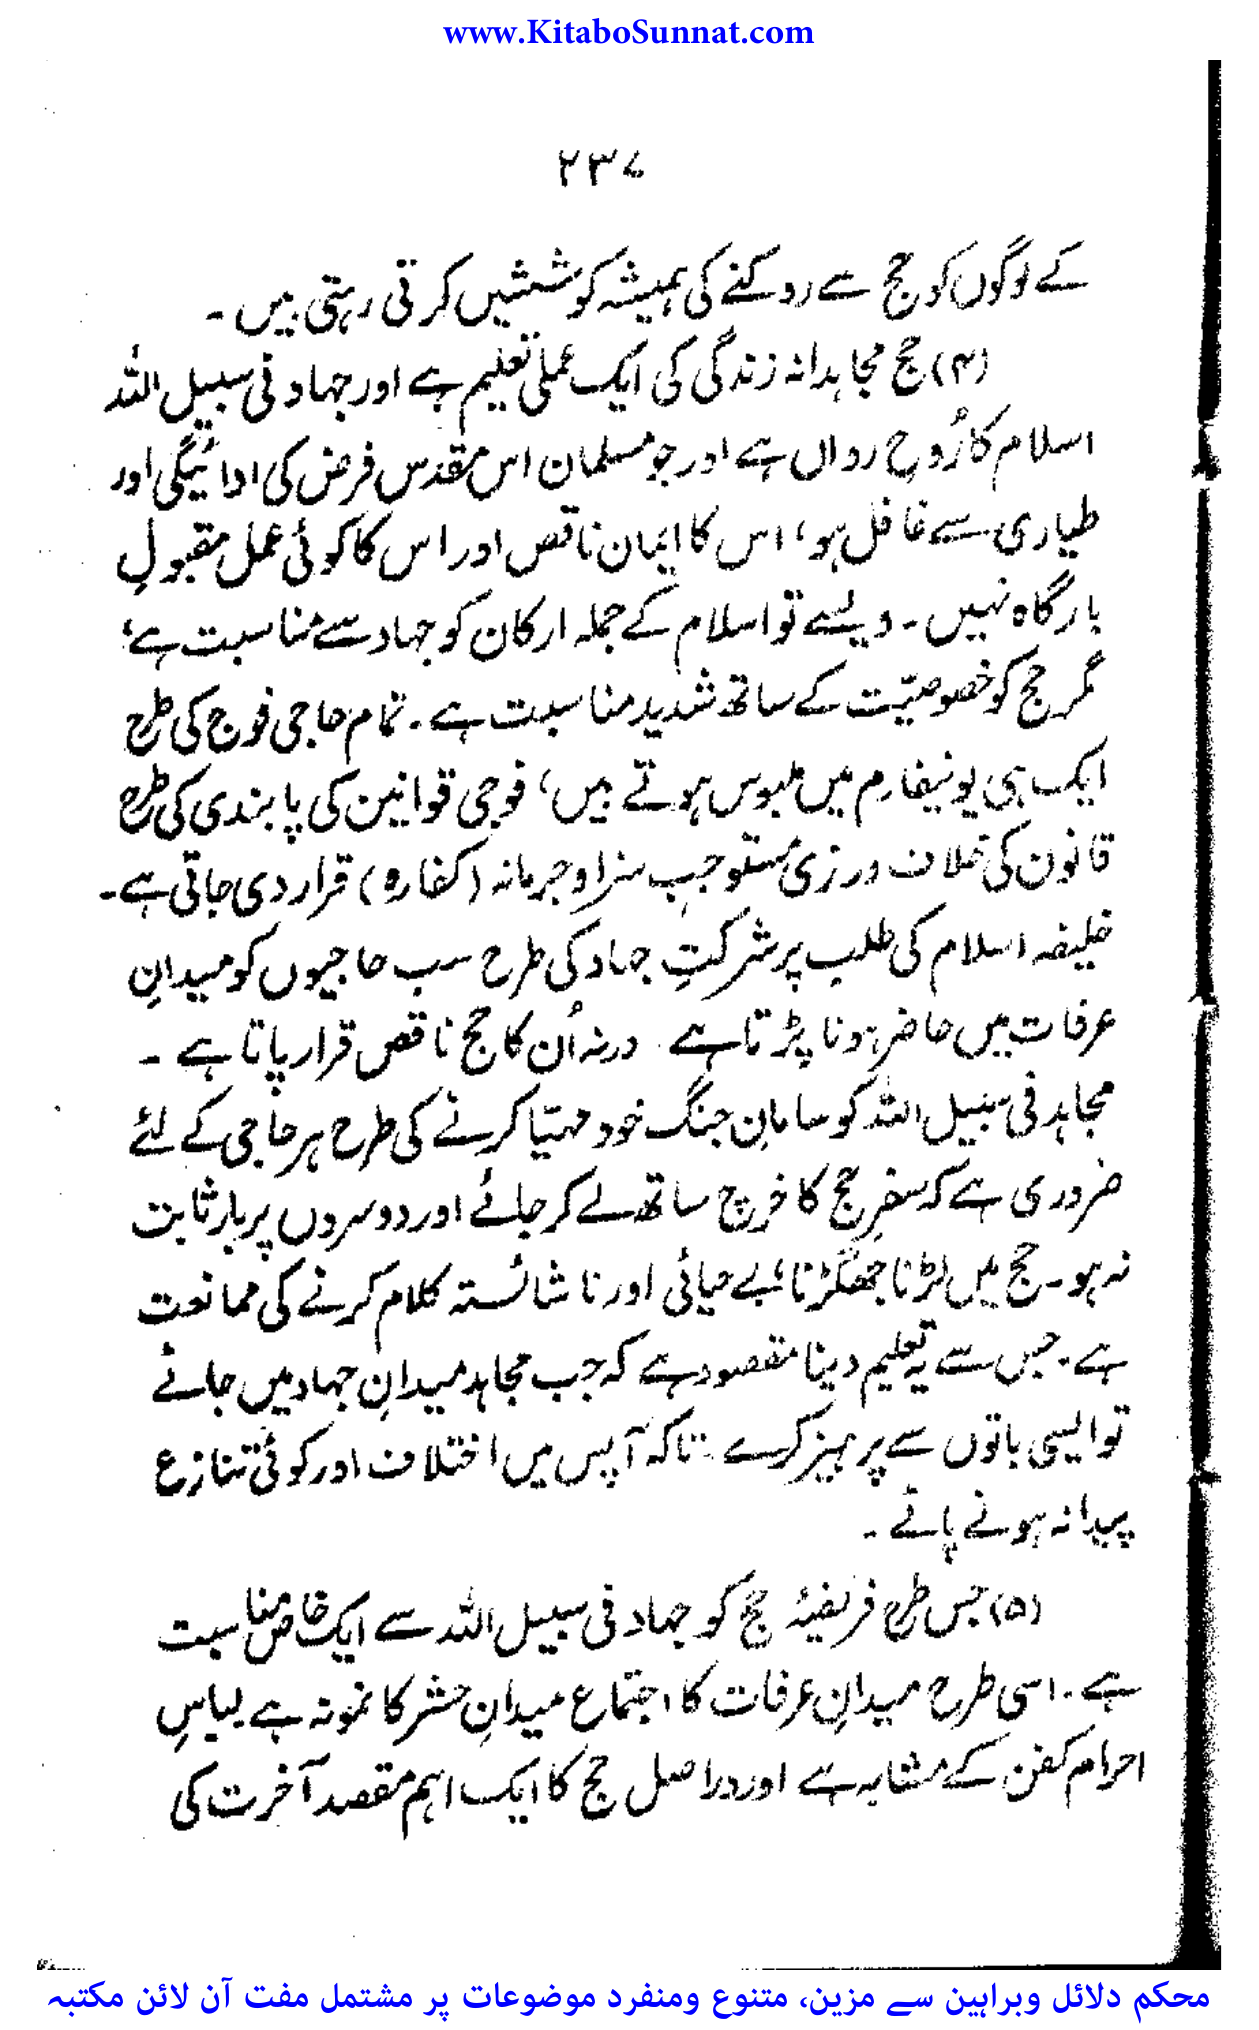 www.KitaboSunnat.com
۲۳۷
کے لوگوں کو حج سے روکنے کی ہمیشہ کوششیں کرتی رہتی ہیں۔
(۴) حج مجاہدانہ زندگی کی ایک عملی تعلیم ہے اور جہاد فی سبیل اللہ
اسلام کا رُوحِ رواں ہے اور جو مسلمان اس مقدس فرض کی ادائیگی اور
طیاری سے غافل ہو، اس کا ایمان ناقص اور اس کا کوئی عمل مقبولِ
بارگاہ نہیں۔ ویسے تو اسلام کے جملہ ارکان کو جہاد سے مناسبت ہے،
مگر حج کو خصوصیّت کے ساتھ شدید مناسبت ہے۔ تمام حاجی فوج کی طرح
ایک ہی یونیفارم میں ملبوس ہوتے ہیں، فوجی قوانین کی پابندی کی طرح
قانون کی خلاف ورزی مستوجب سزا و جرمانہ (کفارہ) قرار دی جاتی ہے۔
خلیفہ اسلام کی طلب پر شرکتِ جہاد کی طرح سب حاجیوں کو میدانِ
عرفات میں حاضر ہونا پڑتا ہے ورنہ اُن کا حج ناقص قرار پاتا ہے ۔
مجاہد فی سبیل اللہ کو سامانِ جنگ خود مہیّا کرنے کی طرح ہر حاجی کے لئے
ضروری ہے کہ سفرِ حج کا خرچ ساتھ لے کر جائے اور دوسروں پر بار ثابت
نہ ہو۔ حج میں لڑنا جھگڑنا، بے حیائی اور نا شائستہ کلام کرنے کی ممانعت
ہے۔ جس سے یہ تعلیم دینا مقصود ہے کہ جب مجاہد میدانِ جہاد میں جائے
تو ایسی باتوں سے پرہیز کرے تاکہ آپس میں اختلاف اور کوئی تنازع
پیدا نہ ہونے پائے ۔
(۵) جس طرح فریضۂ حج کو جہاد فی سبیل اللہ سے ایک خاص مناسبت
ہے۔ اسی طرح میدانِ عرفات کا اجتماع میدانِ حشر کا نمونہ ہے لباسِ
احرام کفن کے مشابہ ہے اور دراصل حج کا ایک اہم مقصد آخرت کی
محکم دلائل وبراہین سے مزین، متنوع ومنفرد موضوعات پر مشتمل مفت آن لائن مکتبہ